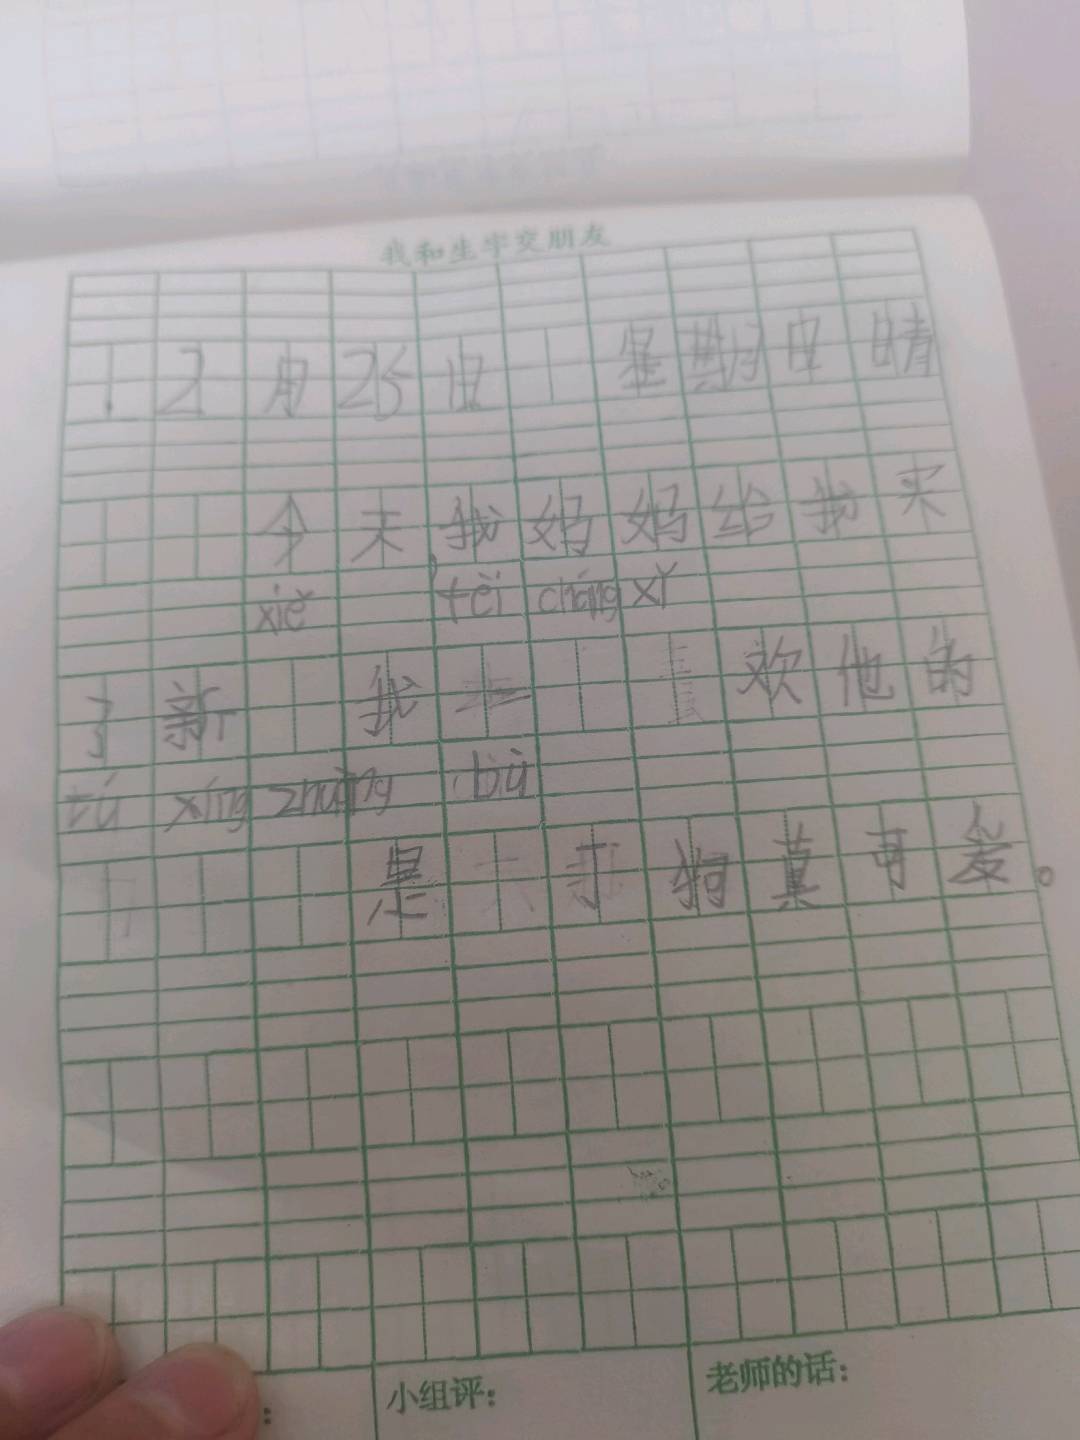 我和生字交朋友
12月25日 星期日晴
今天,我妈妈给我买
xiě fēi cháng xǐ
了新 我 欢他的
tú xíng zhuàng bù
是 小狗真可爱。
小组评:
老师的话: